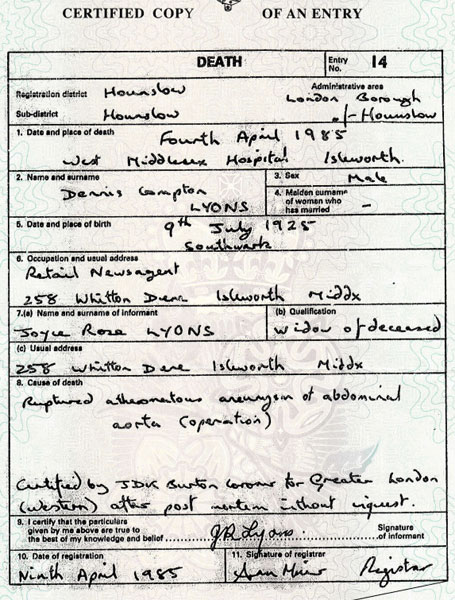 CERTIFIED COPY OF AN ENTRY
DEATH Entry No. 14
Registration district Hounslow Administrative area
Sub-district Hounslow London Borough of Hounslow
1. Date and place of death Fourth April 1985
West Middlesex Hospital Isleworth.
2. Name and surname
Dennis Compton
LYONS
3. Sex Male
4. Maiden surname
of woman who
has married –
5. Date and place of birth 9th July 1925
Southwark
6. Occupation and usual address
Retail Newsagent
258 Whitton Dene Isleworth Middx
7.(a) Name and surname of informant (b) Qualification
Joyce Rose LYONS Widow of deceased
(c) Usual address
258 Whitton Dene Isleworth Middx
8. Cause of death
Ruptured atheromatous aneurysm of abdominal
aorta (operation)
Certified by JDK Burton coroner for Greater London
(Western) after post mortem without inquest.
9. I certify that the particulars
given by me above are true to
the best of my knowledge and belief JR Lyons Signature
of informant
10. Date of registration 11. Signature of registrar
Ninth April 1985 Registrar